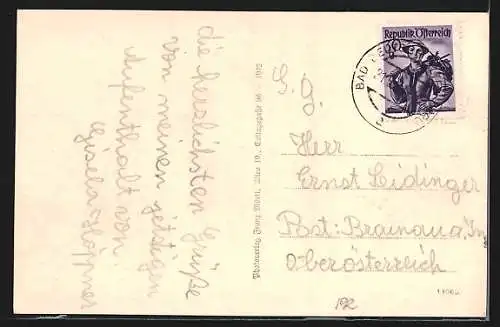 die herzlichsten Grüße
von meinen jetzigen
Aufenthalt von
Gisela Höppner
Photoverlag Franz Mörtl, Wien 19., Cottagegasse 36 — 1952
Republik Österreich
BAD
S. g.
Herrn
Ernst Leidinger
Post: Braunau a/Inn
Oberösterreich
192